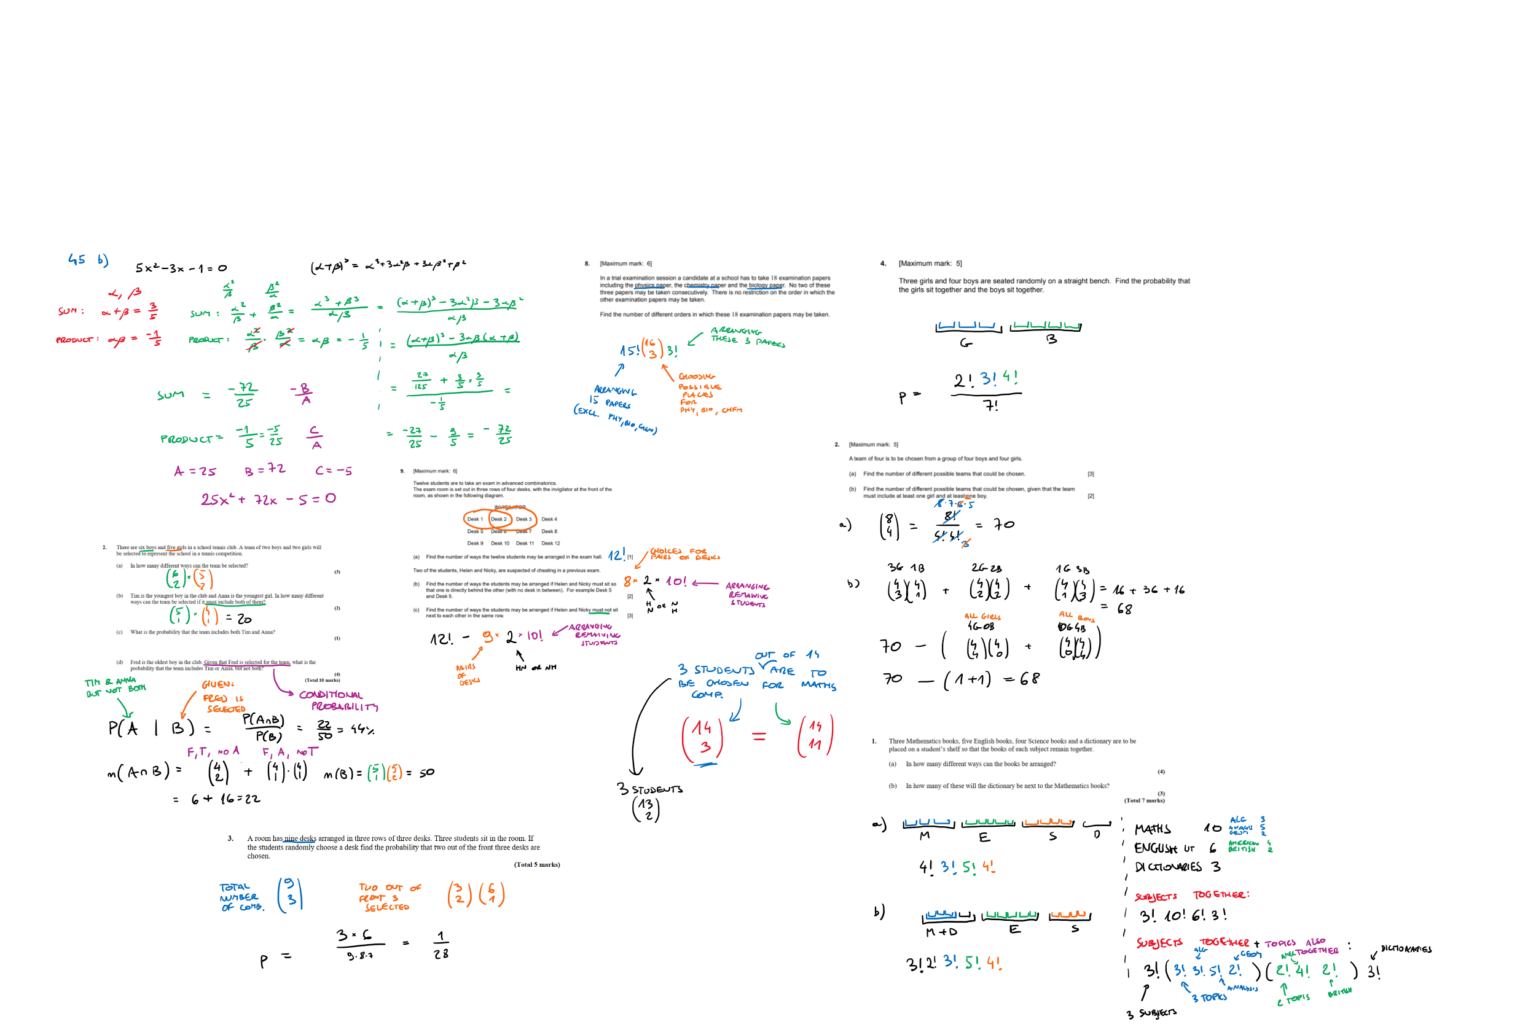 45 b)
5x² - 3x - 1 = 0
(α+β)³ = α³ + 3α²β + 3αβ² + β²
α, β
α²/β β²/α
SUM: α + β = 3/5
SUM: α²/β + β²/α = (α³ + β³)/αβ = ((α+β)³ - 3α²β - 3αβ²)/αβ
PRODUCT: αβ = -1/5
PRODUCT: α²/β · β²/α = αβ = -1/5
= ((α+β)³ - 3αβ(α+β))/αβ
SUM = -72/25 -B/A
= (27/125 + 3/5 · 3/5)/(-1/5) =
PRODUCT = -1/5 = -5/25 C/A
= -27/25 - 9/5 = -72/25
A = 25 B = 72 C = -5
25x² + 72x - 5 = 0
2. There are six boys and five girls in a school tennis club. A team of two boys and two girls will
be selected to represent the school in a tennis competition.
(a) In how many different ways can the team be selected?
(3)
(6 2) · (5 2)
(b) Tim is the youngest boy in the club and Anna is the youngest girl. In how many different
ways can the team be selected if it must include both of them?
(2)
(5 1) · (4 1) = 20
(c) What is the probability that the team includes both Tim and Anna?
(1)
(d) Fred is the oldest boy in the club. Given that Fred is selected for the team, what is the
probability that the team includes Tim or Anna, but not both?
(4)
(Total 10 marks)
TIM & ANNA
BUT NOT BOTH
GIVEN:
FRED IS
SELECTED
CONDITIONAL
PROBABILITY
P(A | B) = P(A∩B)/P(B) = 22/50 = 44%
F, T, no A F, A, noT
n(A∩B) = (4 2) + (4 1)·(4 1) n(B) = (5 1)(5 2) = 50
= 6 + 16 = 22
3. A room has nine desks arranged in three rows of three desks. Three students sit in the room. If
the students randomly choose a desk find the probability that two out of the front three desks are
chosen.
(Total 5 marks)
TOTAL
NUMBER
OF COMB.
(9 3)
TWO OUT OF
FRONT 3
SELECTED
(3 2)(6 1)
P = 3×6/9·8·7 = 1/28
8. [Maximum mark: 6]
In a trial examination session a candidate at a school has to take 18 examination papers
including the physics paper, the chemistry paper and the biology paper. No two of these
three papers may be taken consecutively. There is no restriction on the order in which the
other examination papers may be taken.
Find the number of different orders in which these 18 examination papers may be taken.
ARRANGING
THESE 3 PAPERS
15! (16 3) 3!
ARRANGING
15 PAPERS
(EXCL. PHY, BIO, CHEM)
CHOOSING
POSSIBLE
PLACES
FOR
PHY, BIO, CHEM
9. [Maximum mark: 6]
Twelve students are to take an exam in advanced combinatorics.
The exam room is set out in three rows of four desks, with the invigilator at the front of the
room, as shown in the following diagram.
INVIGILATOR
Desk 1 Desk 2 Desk 3 Desk 4
Desk 5 Desk 6 Desk 7 Desk 8
Desk 9 Desk 10 Desk 11 Desk 12
(a) Find the number of ways the twelve students may be arranged in the exam hall. 12! [1]
Two of the students, Helen and Nicky, are suspected of cheating in a previous exam.
(b) Find the number of ways the students may be arranged if Helen and Nicky must sit so
that one is directly behind the other (with no desk in between). For example Desk 5
and Desk 9.
[2]
CHOICES FOR
PAIRS OF DESKS
8 · 2 × 10!
ARRANGING
REMAINING
STUDENTS
H OR N
N H
(c) Find the number of ways the students may be arranged if Helen and Nicky must not sit
next to each other in the same row.
[3]
12! - 9 · 2 × 10!
ARRANGING
REMAINING
STUDENTS
PAIRS
OF
DESKS
HN OR NH
OUT OF 14
3 STUDENTS ARE TO
BE CHOSEN FOR MATHS
COMP.
(14 3) = (14 11)
3 STUDENTS
(13 2)
4. [Maximum mark: 5]
Three girls and four boys are seated randomly on a straight bench. Find the probability that
the girls sit together and the boys sit together.
G B
P = 2! 3! 4!/7!
2. [Maximum mark: 5]
A team of four is to be chosen from a group of four boys and four girls.
(a) Find the number of different possible teams that could be chosen.
[3]
(b) Find the number of different possible teams that could be chosen, given that the team
must include at least one girl and at least one boy.
[2]
a) (8 4) = 8!/4!·4! = 70
8·7·6·5
3G 1B 2G 2B 1G 3B
b) (4 3)(4 1) + (4 2)(4 2) + (4 1)(4 3) = 16 + 36 + 16
= 68
ALL GIRLS ALL BOYS
4G 0B 0G 4B
70 - ( (4 4)(4 0) + (4 0)(4 4) )
70 - (1+1) = 68
1. Three Mathematics books, five English books, four Science books and a dictionary are to be
placed on a student's shelf so that the books of each subject remain together.
(a) In how many different ways can the books be arranged?
(4)
(b) In how many of these will the dictionary be next to the Mathematics books?
(3)
(Total 7 marks)
a)
M E S D
4! 3! 5! 4!
b)
M+D E S
3! 2! 3! 5! 4!
MATHS 10 ALG 3
ANALYS 5
GEOM 2
ENGLISH LIT 6 AMERICAN 4
BRITISH 2
DICTIONARIES 3
SUBJECTS TOGETHER:
3! 10! 6! 3!
SUBJECTS TOGETHER + TOPICS ALSO
TOGETHER :
ALG GEOM DICTIONARIES
3! (3! 3! 5! 2!) (2! 4! 2!) 3!
3 TOPICS ANALYSIS 2 TOPICS BRITISH
3 SUBJECTS